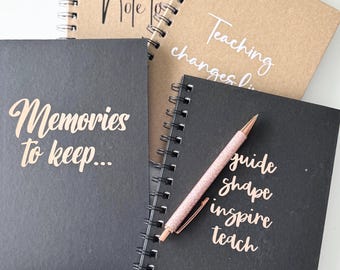 Note to
Teaching
changes
Memories
to keep...
guide
shape
inspire
teach